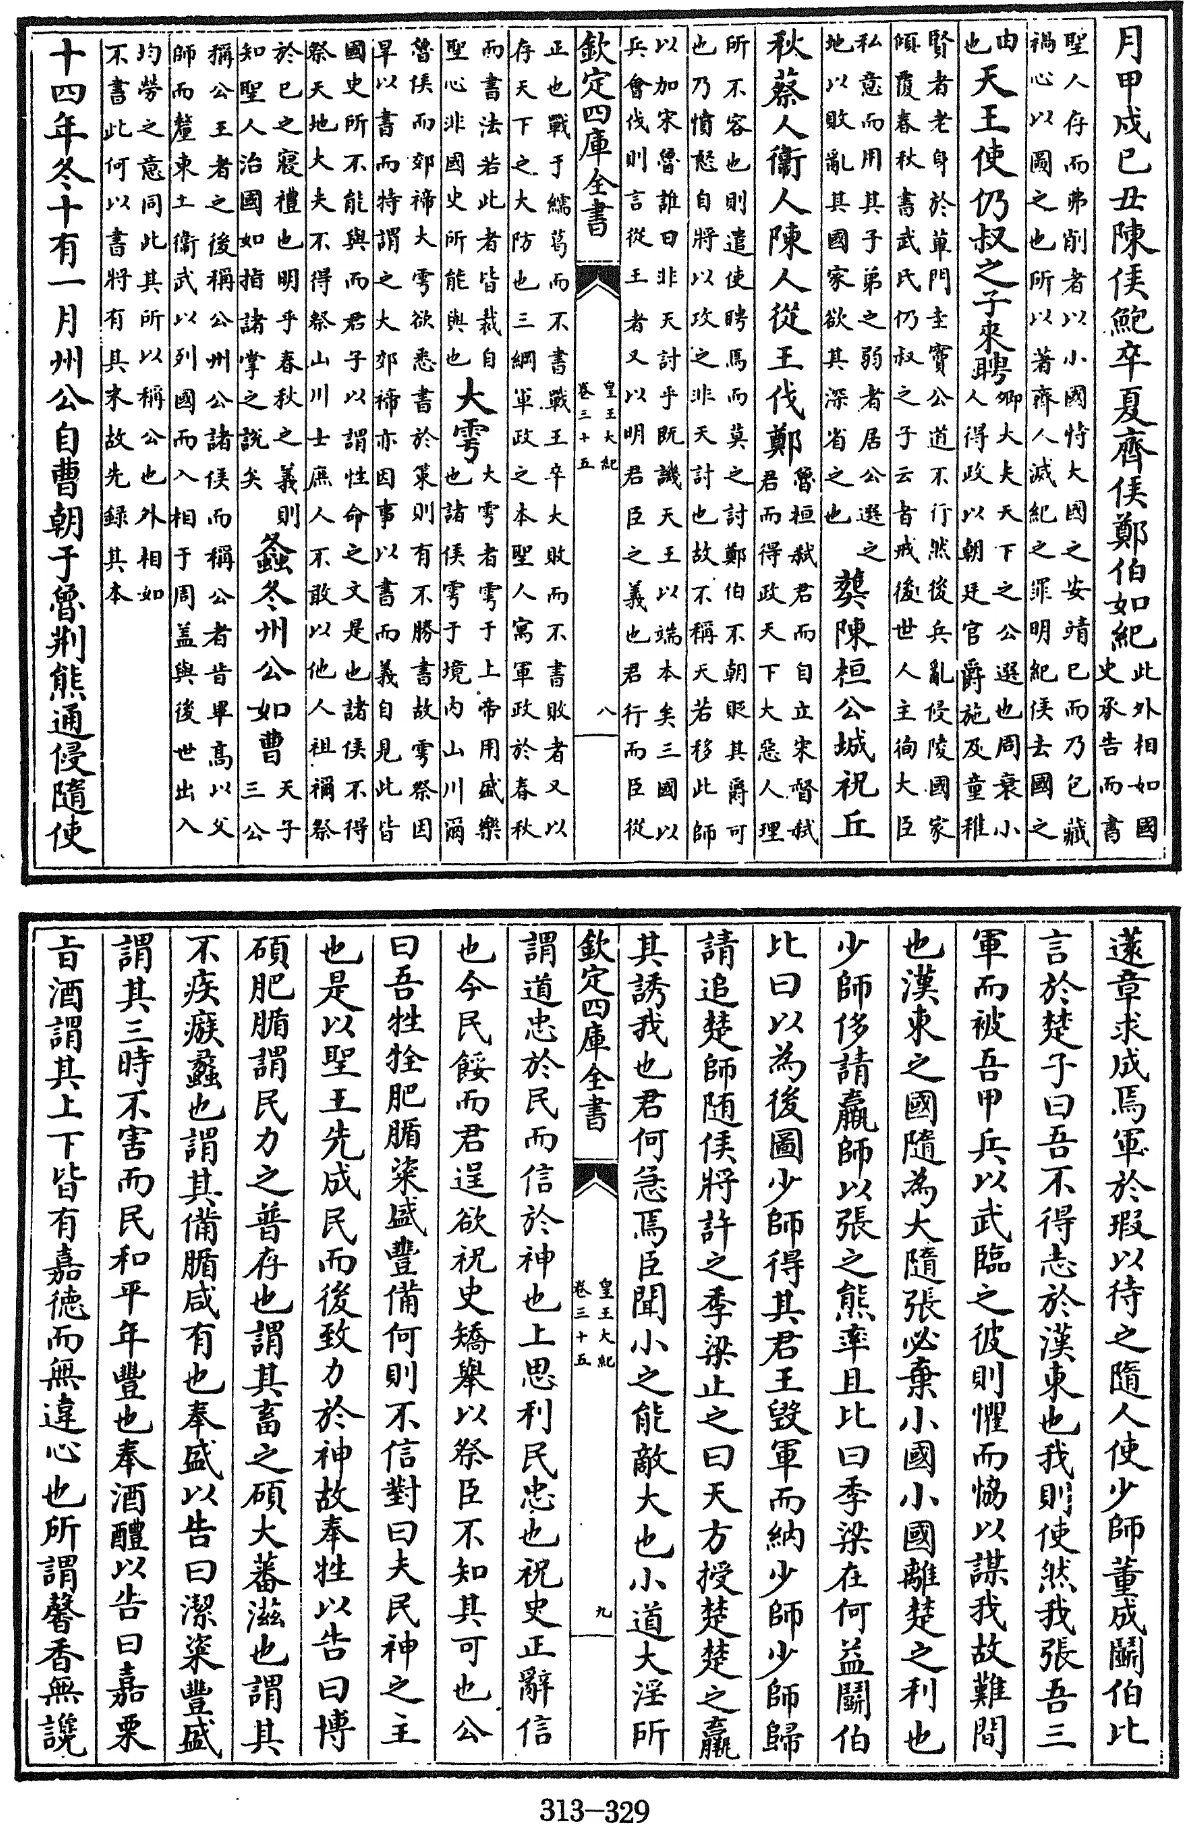 月甲戌己丑陳侯鮑卒夏齊侯鄭伯如紀此外相如國史承告而書
聖人存而弗削者以小國恃大國之安靖己而乃包藏
禍心以圖之也所以著齊人滅紀之罪明紀侯去國之
由也天王使仍叔之子來聘卿大夫天下之公選也周衰小人得政以朝廷官爵施及童稚
賢者老身於蓽門圭竇公道不行然後兵亂侵陵國家
傾覆春秋書武氏仍叔之子云者戒後世人主徇大臣
私意而用其子弟之弱者居公選之地以敗亂其國家欲其深省之也葬陳桓公城祝丘
秋蔡人衛人陳人從王伐鄭魯桓弑君而自立宋督弑君而得政天下大惡人理
所不容也則遣使聘焉而莫之討鄭伯不朝貶其爵可
也乃憤怒自將以攻之非天討也故不稱天若移此師
以加宋魯誰曰非天討乎既譏天王以端本矣三國以
兵會伐則言從王者又以明君臣之義也君行而臣從
欽定四庫全書
皇王大紀
卷三十五
八
正也戰于繻葛而不書戰王卒大敗而不書敗者又以
存天下之大防也三綱軍政之本聖人寓軍政於春秋
而書法若此者皆裁自聖心非國史所能與也大雩大雩者雩于上帝用盛樂也諸侯雩于境內山川爾
魯侯而郊禘大雩欲悉書於策則有不勝書故雩祭因
旱以書而特謂之大郊禘亦因事以書而義自見此皆
國史所不能與而君子以謂性命之文是也諸侯不得
祭天地大夫不得祭山川士庶人不敢以他人祖禰祭
於己之寢禮也明乎春秋之義則知聖人治國如指諸掌之說矣螽冬州公如曹天子三公
稱公王者之後稱公州公諸侯而稱公者昔畢高以父
師而釐東土衛武以列國而入相于周蓋與後世出入
均勞之意同此其所以稱公也外相如
不書此何以書將有其末故先錄其本
十四年冬十有一月州公自曹朝于魯荆熊通侵隨使
薳章求成焉軍於瑕以待之隨人使少師董成鬭伯比
言於楚子曰吾不得志於漢東也我則使然我張吾三
軍而被吾甲兵以武臨之彼則懼而恊以謀我故難間
也漢東之國隨為大隨張必棄小國小國離楚之利也
少師侈請羸師以張之熊率且比曰季梁在何益鬭伯
比曰以為後圖少師得其君王毀軍而納少師少師歸
請追楚師隨侯將許之季梁止之曰天方授楚楚之羸
其誘我也君何急焉臣聞小之能敵大也小道大淫所
欽定四庫全書
皇王大紀
卷三十五
九
謂道忠於民而信於神也上思利民忠也祝史正辭信
也今民餒而君逞欲祝史矯舉以祭臣不知其可也公
曰吾牲牷肥腯粢盛豐備何則不信對曰夫民神之主
也是以聖王先成民而後致力於神故奉牲以告曰博
碩肥腯謂民力之普存也謂其畜之碩大蕃滋也謂其
不疾瘯蠡也謂其備腯咸有也奉盛以告曰潔粢豐盛
謂其三時不害而民和平年豐也奉酒醴以告曰嘉栗
旨酒謂其上下皆有嘉德而無違心也所謂馨香無讒
313—329